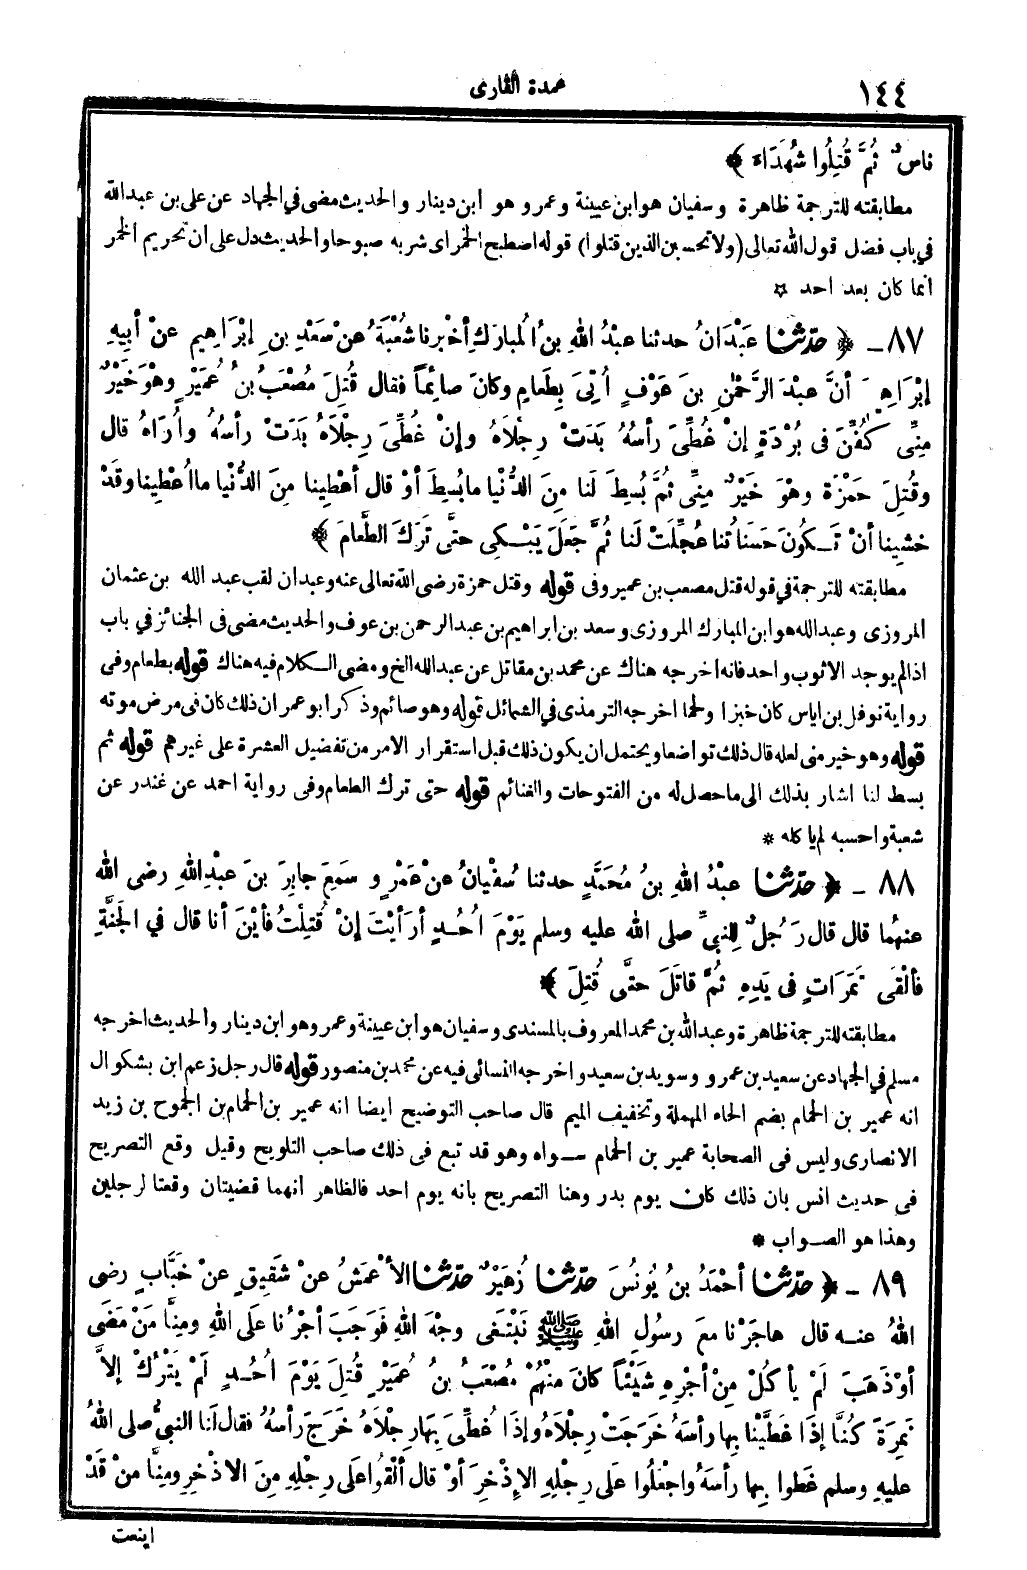 ١٤٤
عمدة القارى
ناسٌ ثُمَّ قُتِلُوا شُهَدَاءَ ﴾
مطابقته للترجمة ظاهرة وسفيان هو ابن عيينة وعمرو هو ابن دينار والحديث مضى في الجهاد عن على بن عبدالله
في باب فضل قول الله تعالى (ولا تحسبن الذين قتلوا) قوله اصطبح الخمر اى شربه صبوحا والحديث دل على ان تحريم الخمر
انما كان بعد احد ☆
٨٧ - ﴿ حدّثنا عَبْدَانُ حدثنا عبدُ اللهِ بنُ المبارَكِ أخبرنا شُعْبَةُ عنْ سَعْدِ بنِ إبْرَاهِيم عنْ أبِيهِ
إبْرَاهِيمَ أنَّ عبْدَ الرَّحْمٰنِ بنَ عَوْفٍ أُتِىَ بِطَعامٍ وكانَ صائِماً فقال قُتِلَ مُصْعَبُ بنُ عُمَيْرٍ وهْوَ خَيْرٌ
مِنِّى كُفِّنَ فى بُرْدَةٍ إنْ غُطِّىَ رأسُهُ بَدَتْ رِجْلاَهُ وإنْ غُطِّىَ رِجْلاَهُ بَدَتْ رأسُهُ وأُرَاهُ قال
وقُتِلَ حَمْزَة وهْوَ خَيْرٌ مِنِّى ثُمَّ بُسِطَ لَنا مِنَ الدُّنْيا ما بُسِطَ أوْ قال أعْطِينا مِنَ الدُّنْيا ما اُعْطِينا وقَدْ
خشينا أنْ تَكُونَ حَسَنَاتُنا عُجِّلَتْ لَنا ثُمَّ جَعَلَ يَبْكِى حتَّى تَرَكَ الطَّعامَ ﴾
مطابقته للترجمة في قوله قتل مصعب بن عمير وفى قوله وقتل حمزة رضى الله تعالى عنه وعبدان لقب عبد الله بن عثمان
المروزى وعبدالله هو ابن المبارك المروزى وسعد بن ابراهيم بن عبدالرحمن بن عوف والحديث مضى فى الجنائز في باب
اذا لم يوجد الا ثوب واحد فانه اخرجه هناك عن محمد بن مقاتل عن عبدالله الخ ومضى الكلام فيه هناك قوله بطعام وفى
رواية نوفل بن اياس كان خبزا ولحما اخرجه الترمذى في الشمائل قوله وهو صائم وذكر ابو عمر ان ذلك كان فى مرض موته
قوله وهو خير منى لعله قال ذلك تواضعا ويحتمل ان يكون ذلك قبل استقرار الامر من تفضيل العشرة على غيرهم قوله ثم
بسط لنا اشار بذلك الى ما حصل له من الفتوحات والغنائم قوله حتى ترك الطعام وفى رواية احمد عن غندر عن
شعبة واحسبه لم ياكله *
٨٨ - ﴿ حدّثنا عبْدُ اللهِ بنُ مُحَمَّدٍ حدثنا سُفْيانُ عنْ عَمْرٍو سَمِعَ جابِرَ بنَ عبْدِاللهِ رضى الله
عنهُما قال قال رَجُلٌ لِلنبيِّ صلى الله عليه وسلم يَوْمَ اُحُدٍ أرَأيْتَ إنْ قُتِلْتُ فأيْنَ أنا قال في الجَنَّةِ
فألْقَى تَمَرَاتٍ فى يَدِهِ ثُمَّ قاتَلَ حتَّى قُتِلَ ﴾
مطابقته للترجمة ظاهرة وعبدالله بن محمد المعروف بالمسندى وسفيان هو ابن عيينة وعمرو هو ابن دينار والحديث اخرجه
مسلم في الجهاد عن سعيد بن عمرو وسويد بن سعيد واخرجه النسائى فيه عن محمد بن منصور قوله قال رجل زعم ابن بشكوال
انه عمير بن الحمام بضم الحاء المهملة وتخفيف الميم قال صاحب التوضيح ايضا انه عمير بن الحمام بن الجموح بن زيد
الانصارى وليس فى الصحابة عمير بن الحمام سواه وهو قد تبع فى ذلك صاحب التلويح وقيل وقع التصريح
فى حديث انس بان ذلك كان يوم بدر وهنا التصريح بانه يوم احد فالظاهر انهما قضيتان وقعتا لرجلين
وهذا هو الصواب *
٨٩ - ﴿ حدّثنا أحْمَدُ بنُ يُونُسَ حدّثنا زُهَيْرٌ حدّثنا الأعْمَشُ عنْ شَقِيقٍ عنْ خَبَّابٍ رضى
اللهُ عنه قال هاجَرْنا معَ رسولِ اللهِ ﷺ نَبْتَغى وجْهَ اللهِ فَوَجَبَ أجْرُنا علَى اللهِ ومِنَّا مَنْ مَضَى
أوْ ذَهَبَ لَمْ يأكُلْ مِنْ أجْرِهِ شَيْئاً كانَ مِنْهُمْ مُصْعَبُ بنُ عُمَيْرٍ قُتِلَ يَوْمَ اُحُدٍ لَمْ يَتْرُكْ إلاَّ
نَمِرَةً كُنَّا إذَا غَطَّيْنا بِها رأسَهُ خَرَجَتْ رِجْلاَهُ وإذَا غُطِّىَ بِهَا رِجْلاَهُ خَرَجَ رأسُهُ فقال لَنا النبىُّ صلى اللهُ
عليهِ وسلم غَطوا بِها رأسَهُ واجْعَلُوا علَى رِجْلِهِ الإذْخِرَ أوْ قال ألْقُوا علَى رِجْلِهِ مِنَ الاذْخِرِ ومِنَّا منْ قَدْ
اينعت